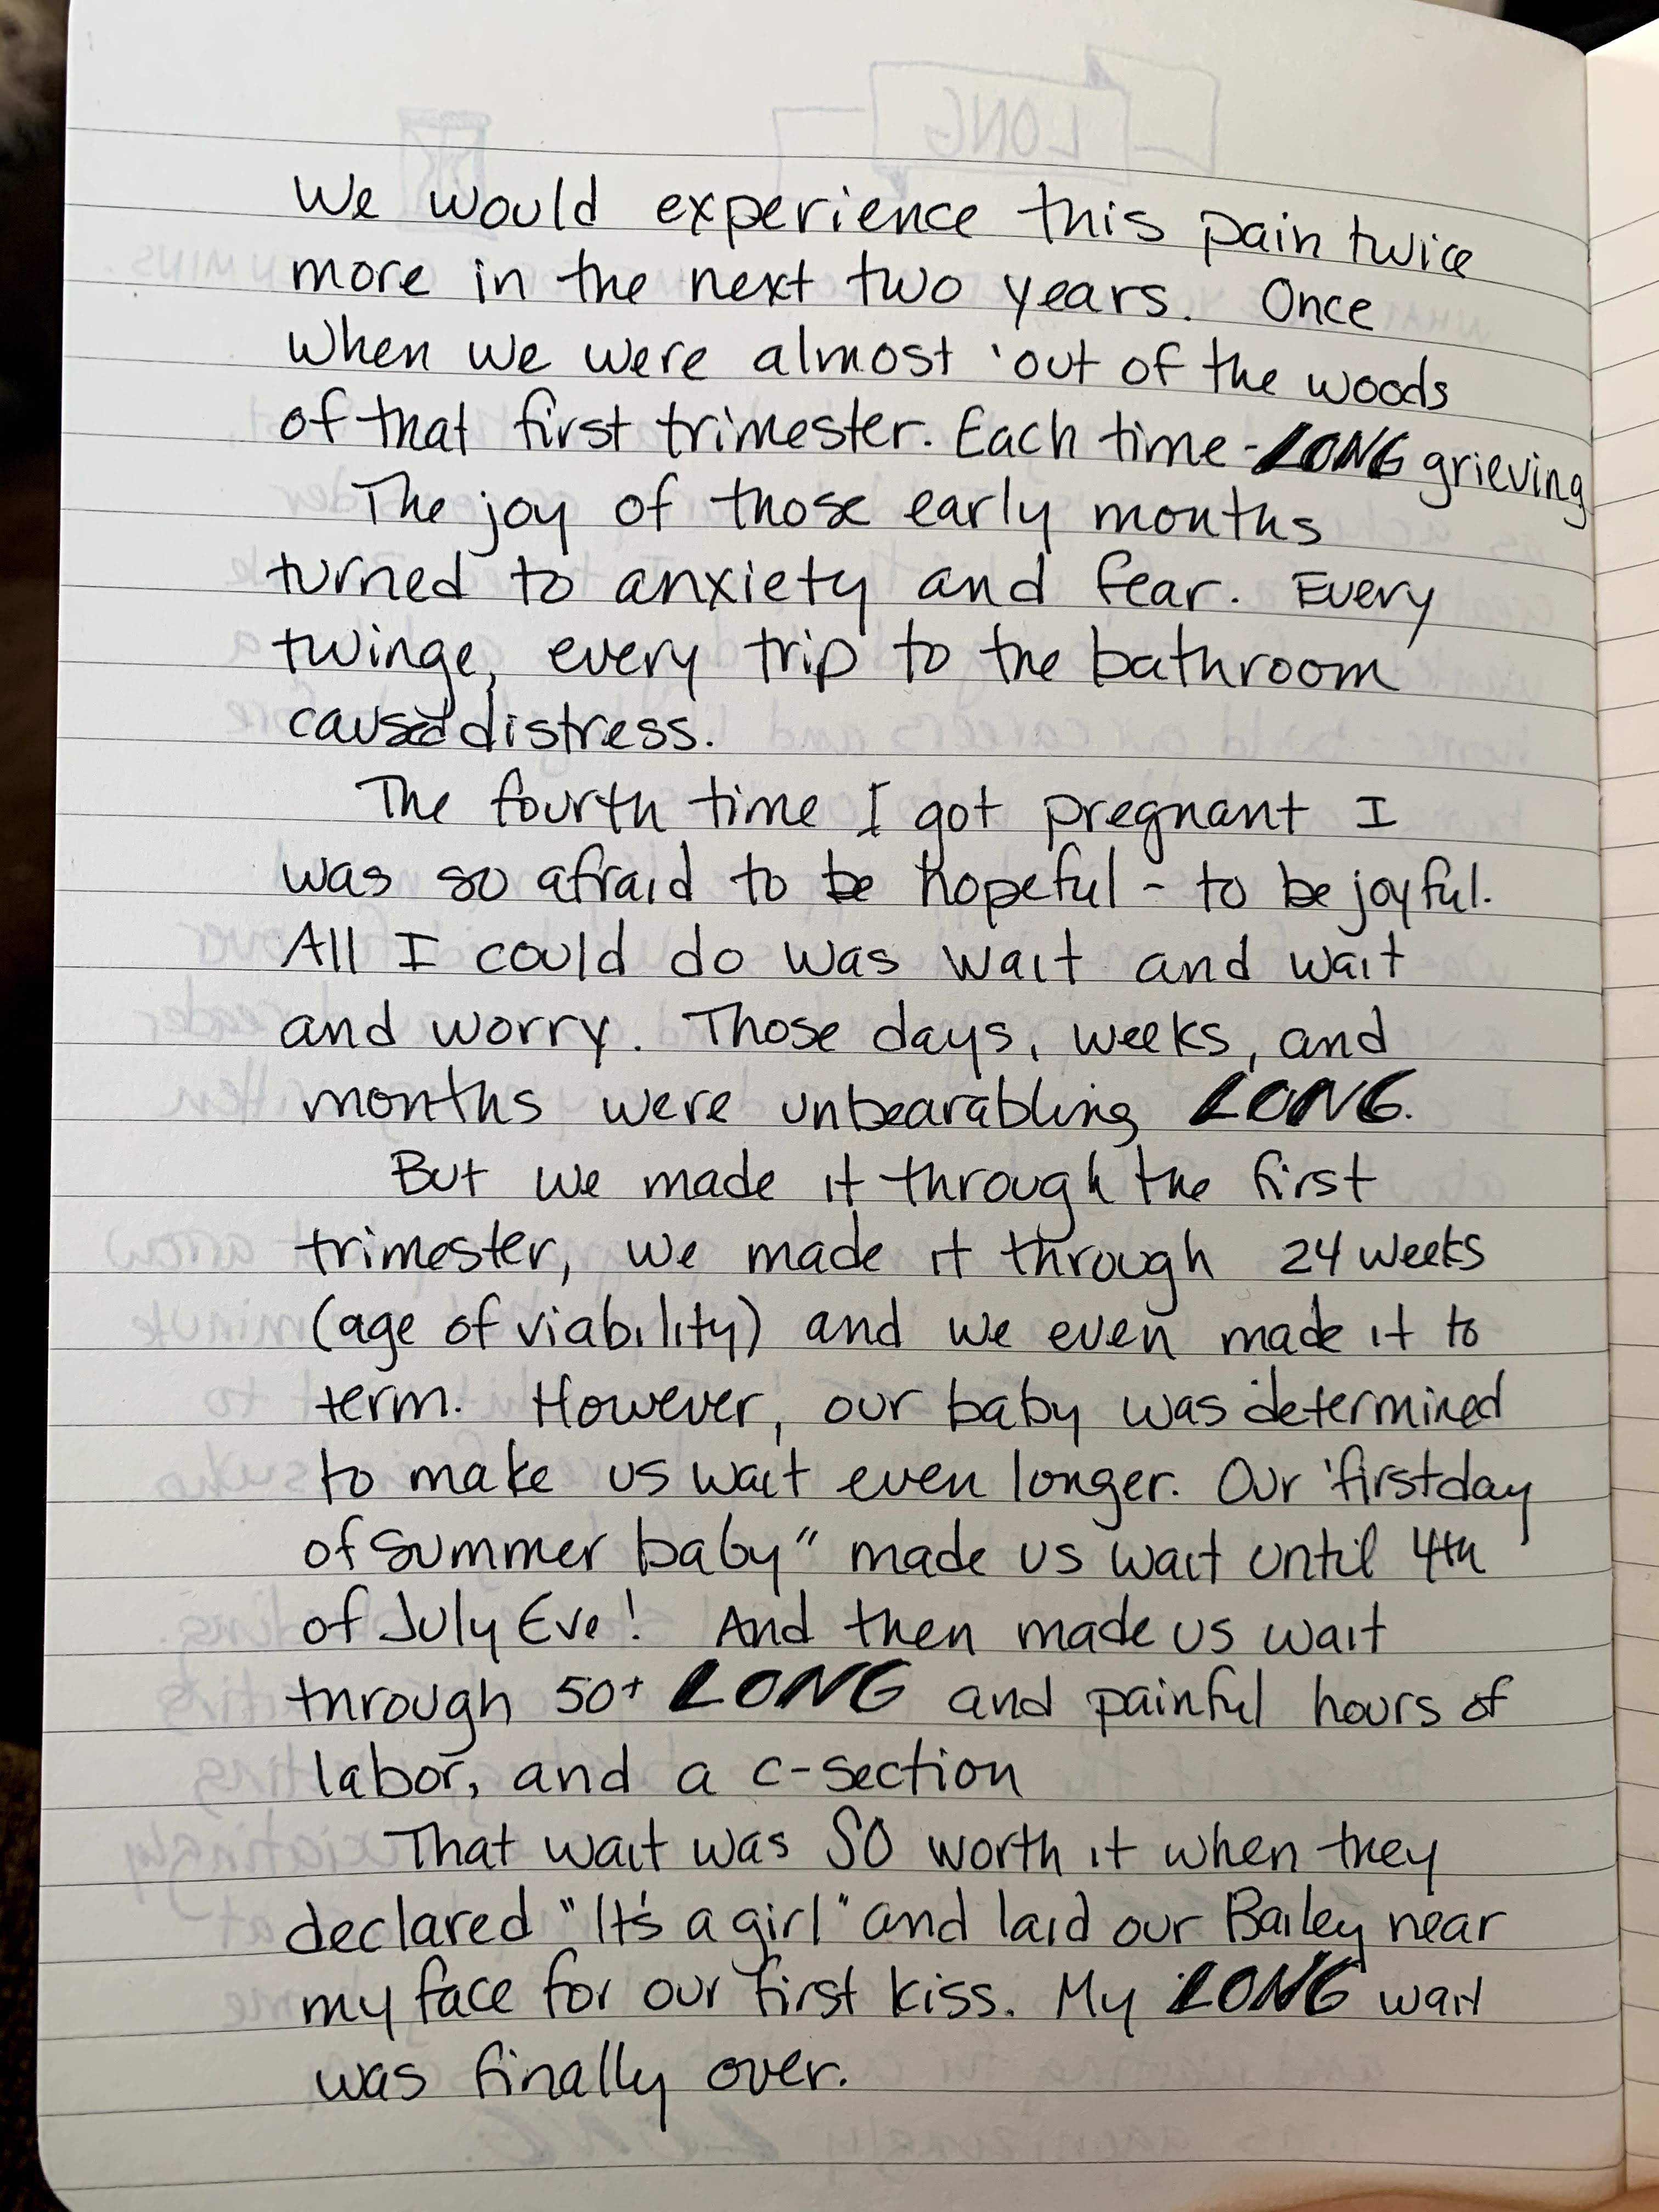 LONG
We would experience this pain twice
more in the next two years. Once
when we were almost 'out of the woods
of that first trimester. Each time - LONG grieving
The joy of those early months
turned to anxiety and fear. Every
twinge, every trip to the bathroom
caused distress.
The fourth time I got pregnant I
was so afraid to be hopeful - to be joyful.
All I could do was wait and wait
and worry. Those days, weeks, and
months were unbearabling LONG.
But we made it through the first
trimester, we made it through 24 weeks
(age of viability) and we even made it to
term. However, our baby was determined
to make us wait even longer. Our 'first day
of summer baby" made us wait until 4th
of July Eve! And then made us wait
through 50+ LONG and painful hours of
labor, and a c-section
That wait was SO worth it when they
declared "It's a girl" and laid our Bailey near
my face for our first kiss. My LONG wait
was finally over.